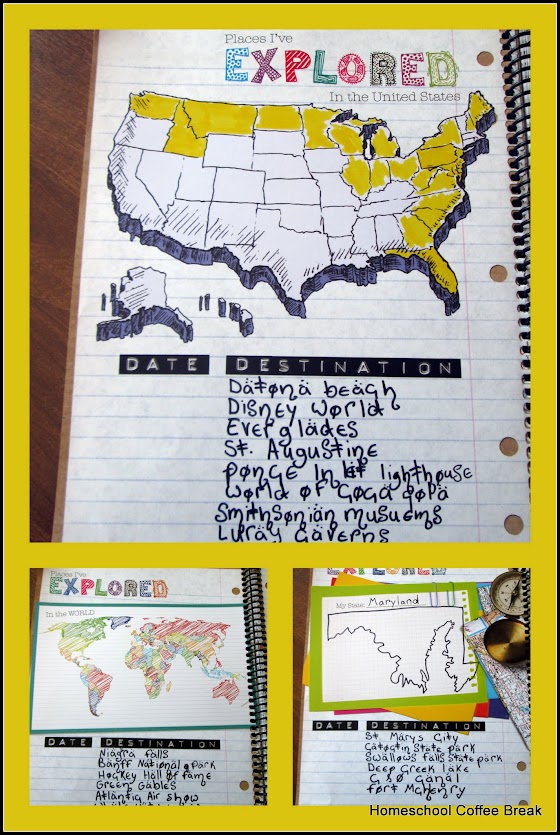 Places I've
EXPLORED
In the United States
DATE DESTINATION
Datona beach
Disney World
Everglades
St. Augustine
ponce Inlet lighthouse
World of Coca Cola
Smithsonian musuems
Luray Caverns
Places I've
EXPLORED
In the WORLD
DATE DESTINATION
Niagra falls
Banff National park
Hockey Hall of fame
Green Gables
Atlantic Air show
EXPLORED
My State: Maryland
DATE DESTINATION
St. Marys City
Catoctin State park
Swallows falls State park
Deep Creek lake
C & O Canal
fort McHenry
Homeschool Coffee Break